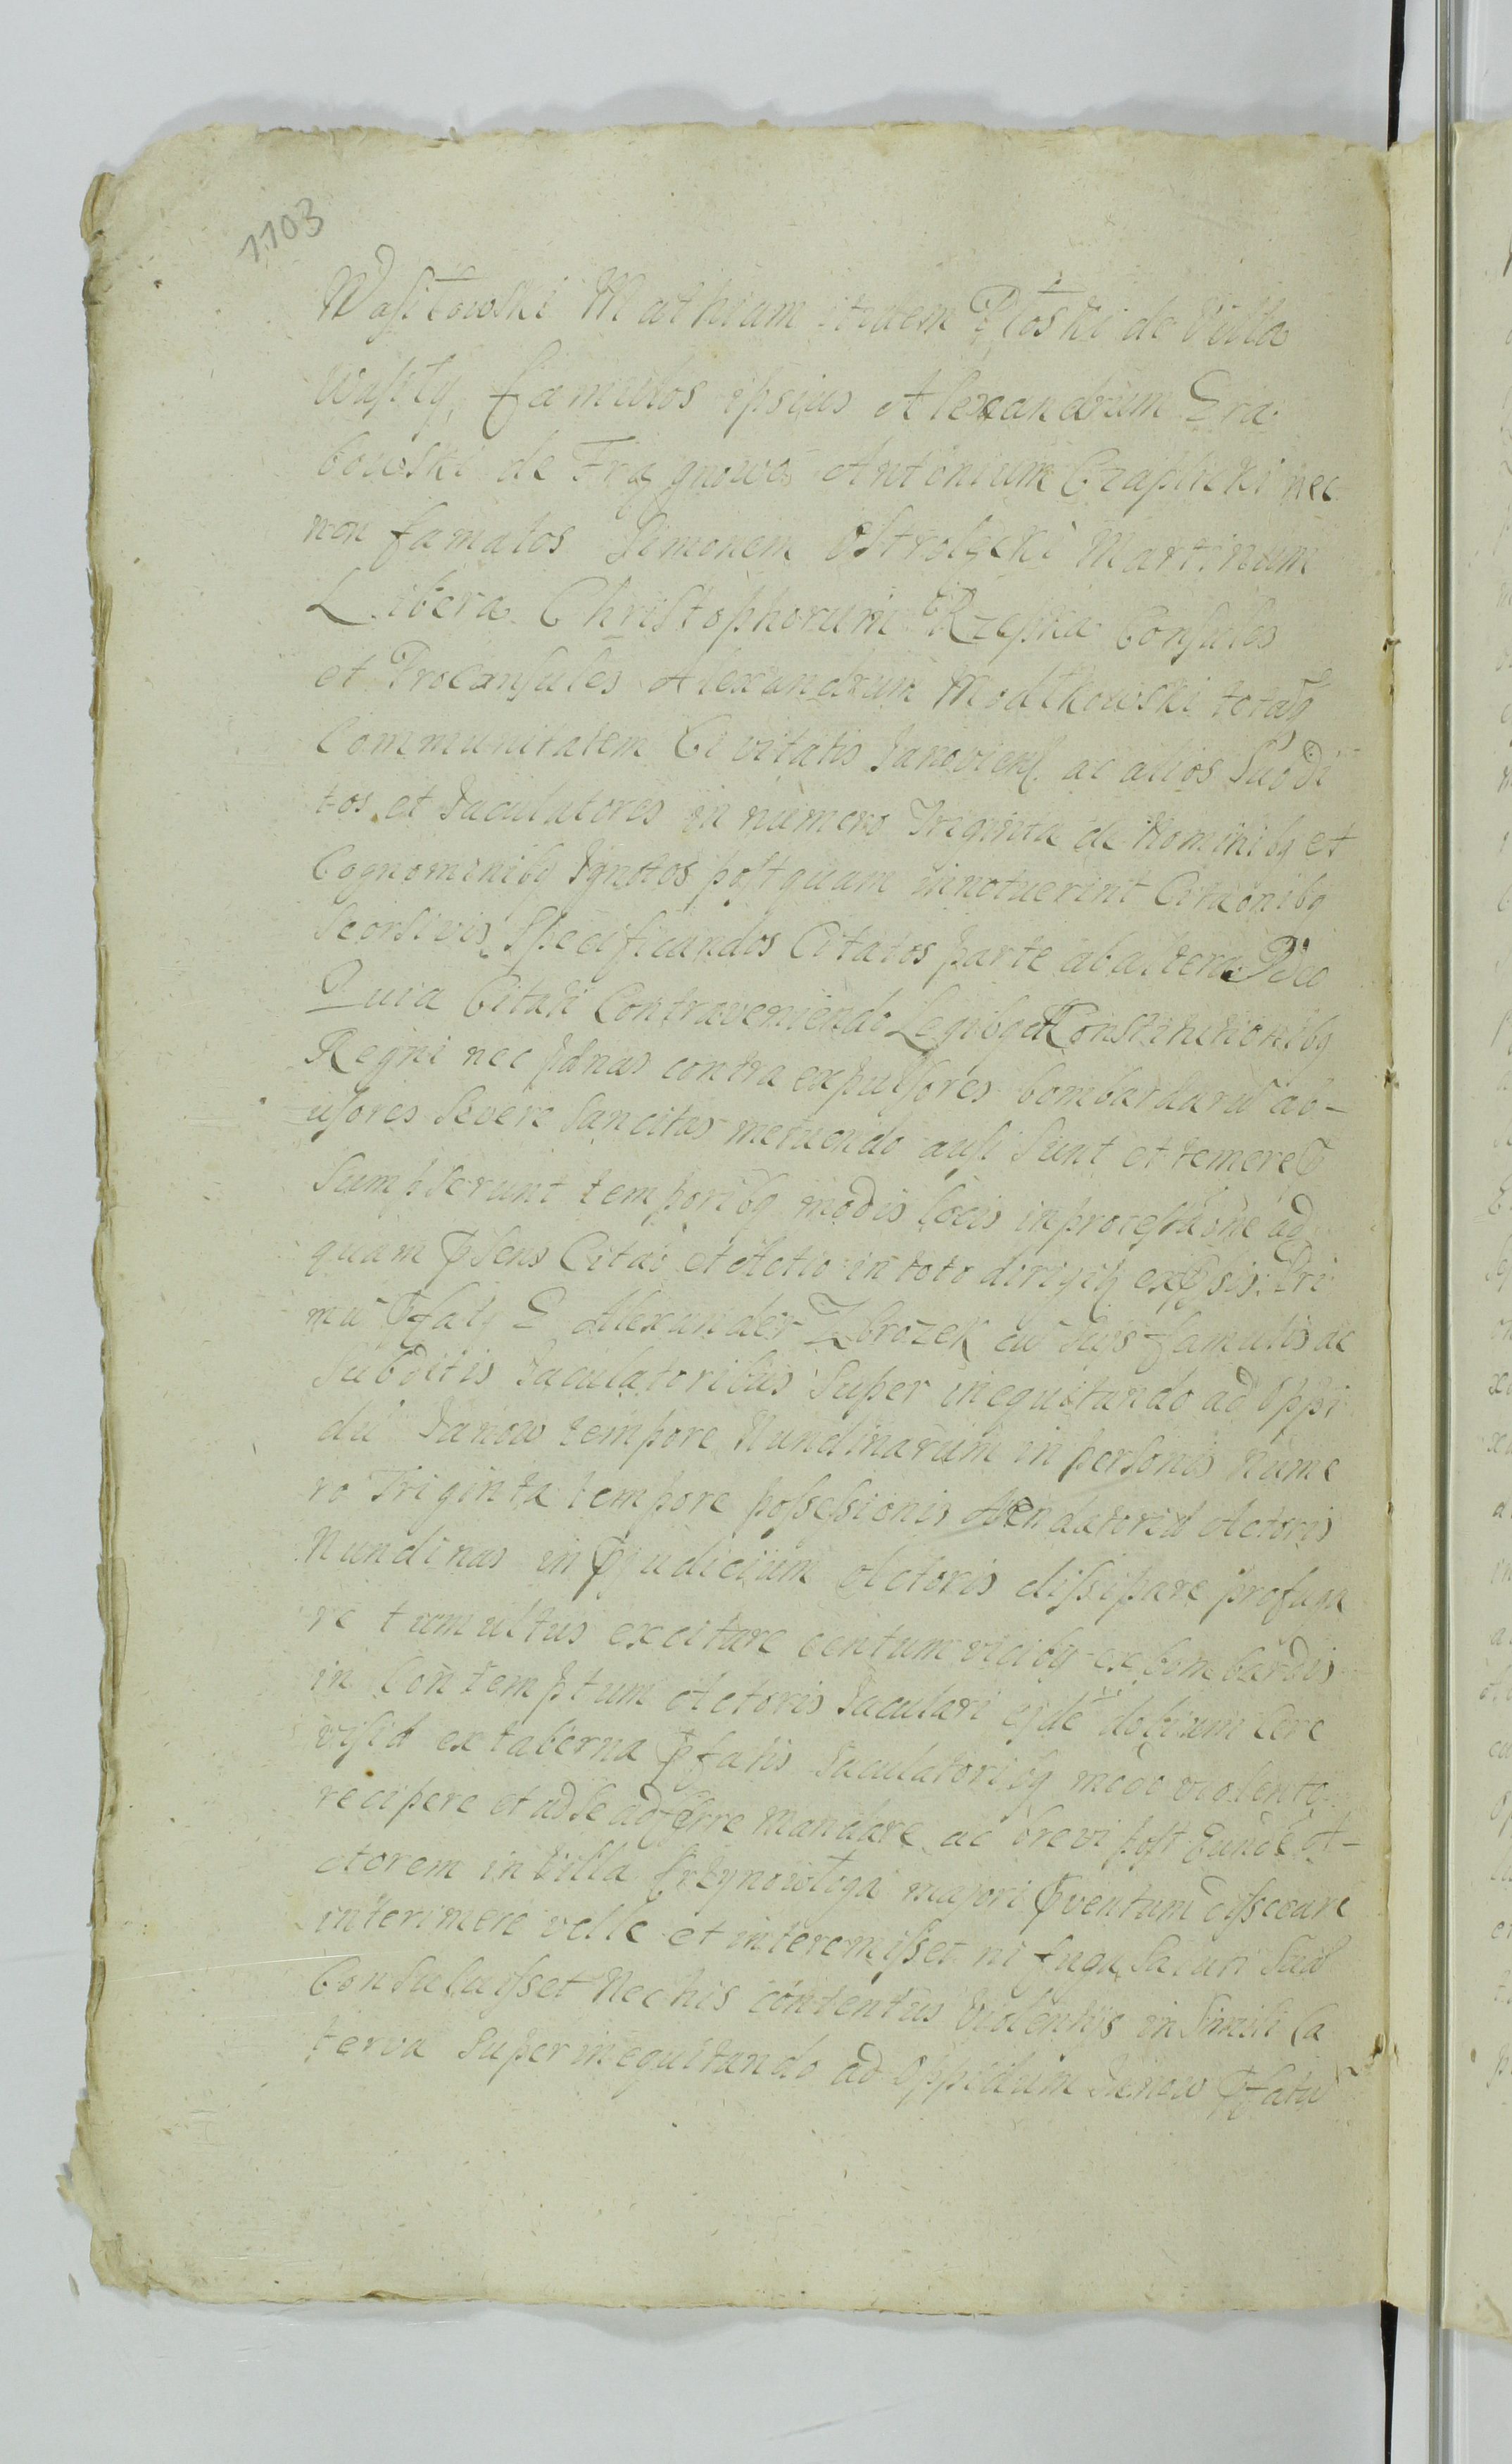 1103
Wasiłowski Mathiam itidem Płoski de Villa
Wasiły, famulos ipsius Alexandrum Gra
bowski de Antonium Czaplicki nec
non famatos Simonem Ostrolęcki Martinum
Libera Christophorum Rzepka Consules
et Proconsules Alexandrum Modtkowski totaq
Communitatem Civitatis Janoviens. ac alios Subdi
tos et Jaculatores in numero Triginta de Nominibq et
Cognominibq Ignotos postquam innotuerint Citaonibq
Seorsivis Specificandos Citatos parte ab altera Ideo
Quia Citati Contraveniendo Legibq et Constitutionibq
Regni nec pænas contra expulsores bombardarū ab-
usores Severe Sancitas metuendo ausi Sunt et temere p
Sumpserunt temporibq modis locis in protestaōne ad
quam psens Citao et Actio in toto dirigit expsis. Pri
mū pfatq G Alexander Zbrozek cū Suis famulis ac
Subditis Jaculatoribus Super inequitando ad Oppi
dū Janow tempore Nundinarum in personis nume
ro Triginta tempore possessionis Arendatoriæ Actoris
Nundinas in pjudicium Actoris dissipare profuga
re tumultus excitare centum vicibq ex bombardis
in Contemptum Actoris Jaculari ejdē dolium Cere
visiæ ex taberna pfatis Jaculatoribq modo violento
recipere et ad Se adferre mandare ac brevi post Eundē A-
ctorem in Villa Krzynowłoga majori pventum dissecare
interimere velle et interemisset ni fuga Saluti Suæ
Consuluisset Nec his contentus Violentijs in Simili Ca
terva Super inequitando ad Oppidum Janow pfatū